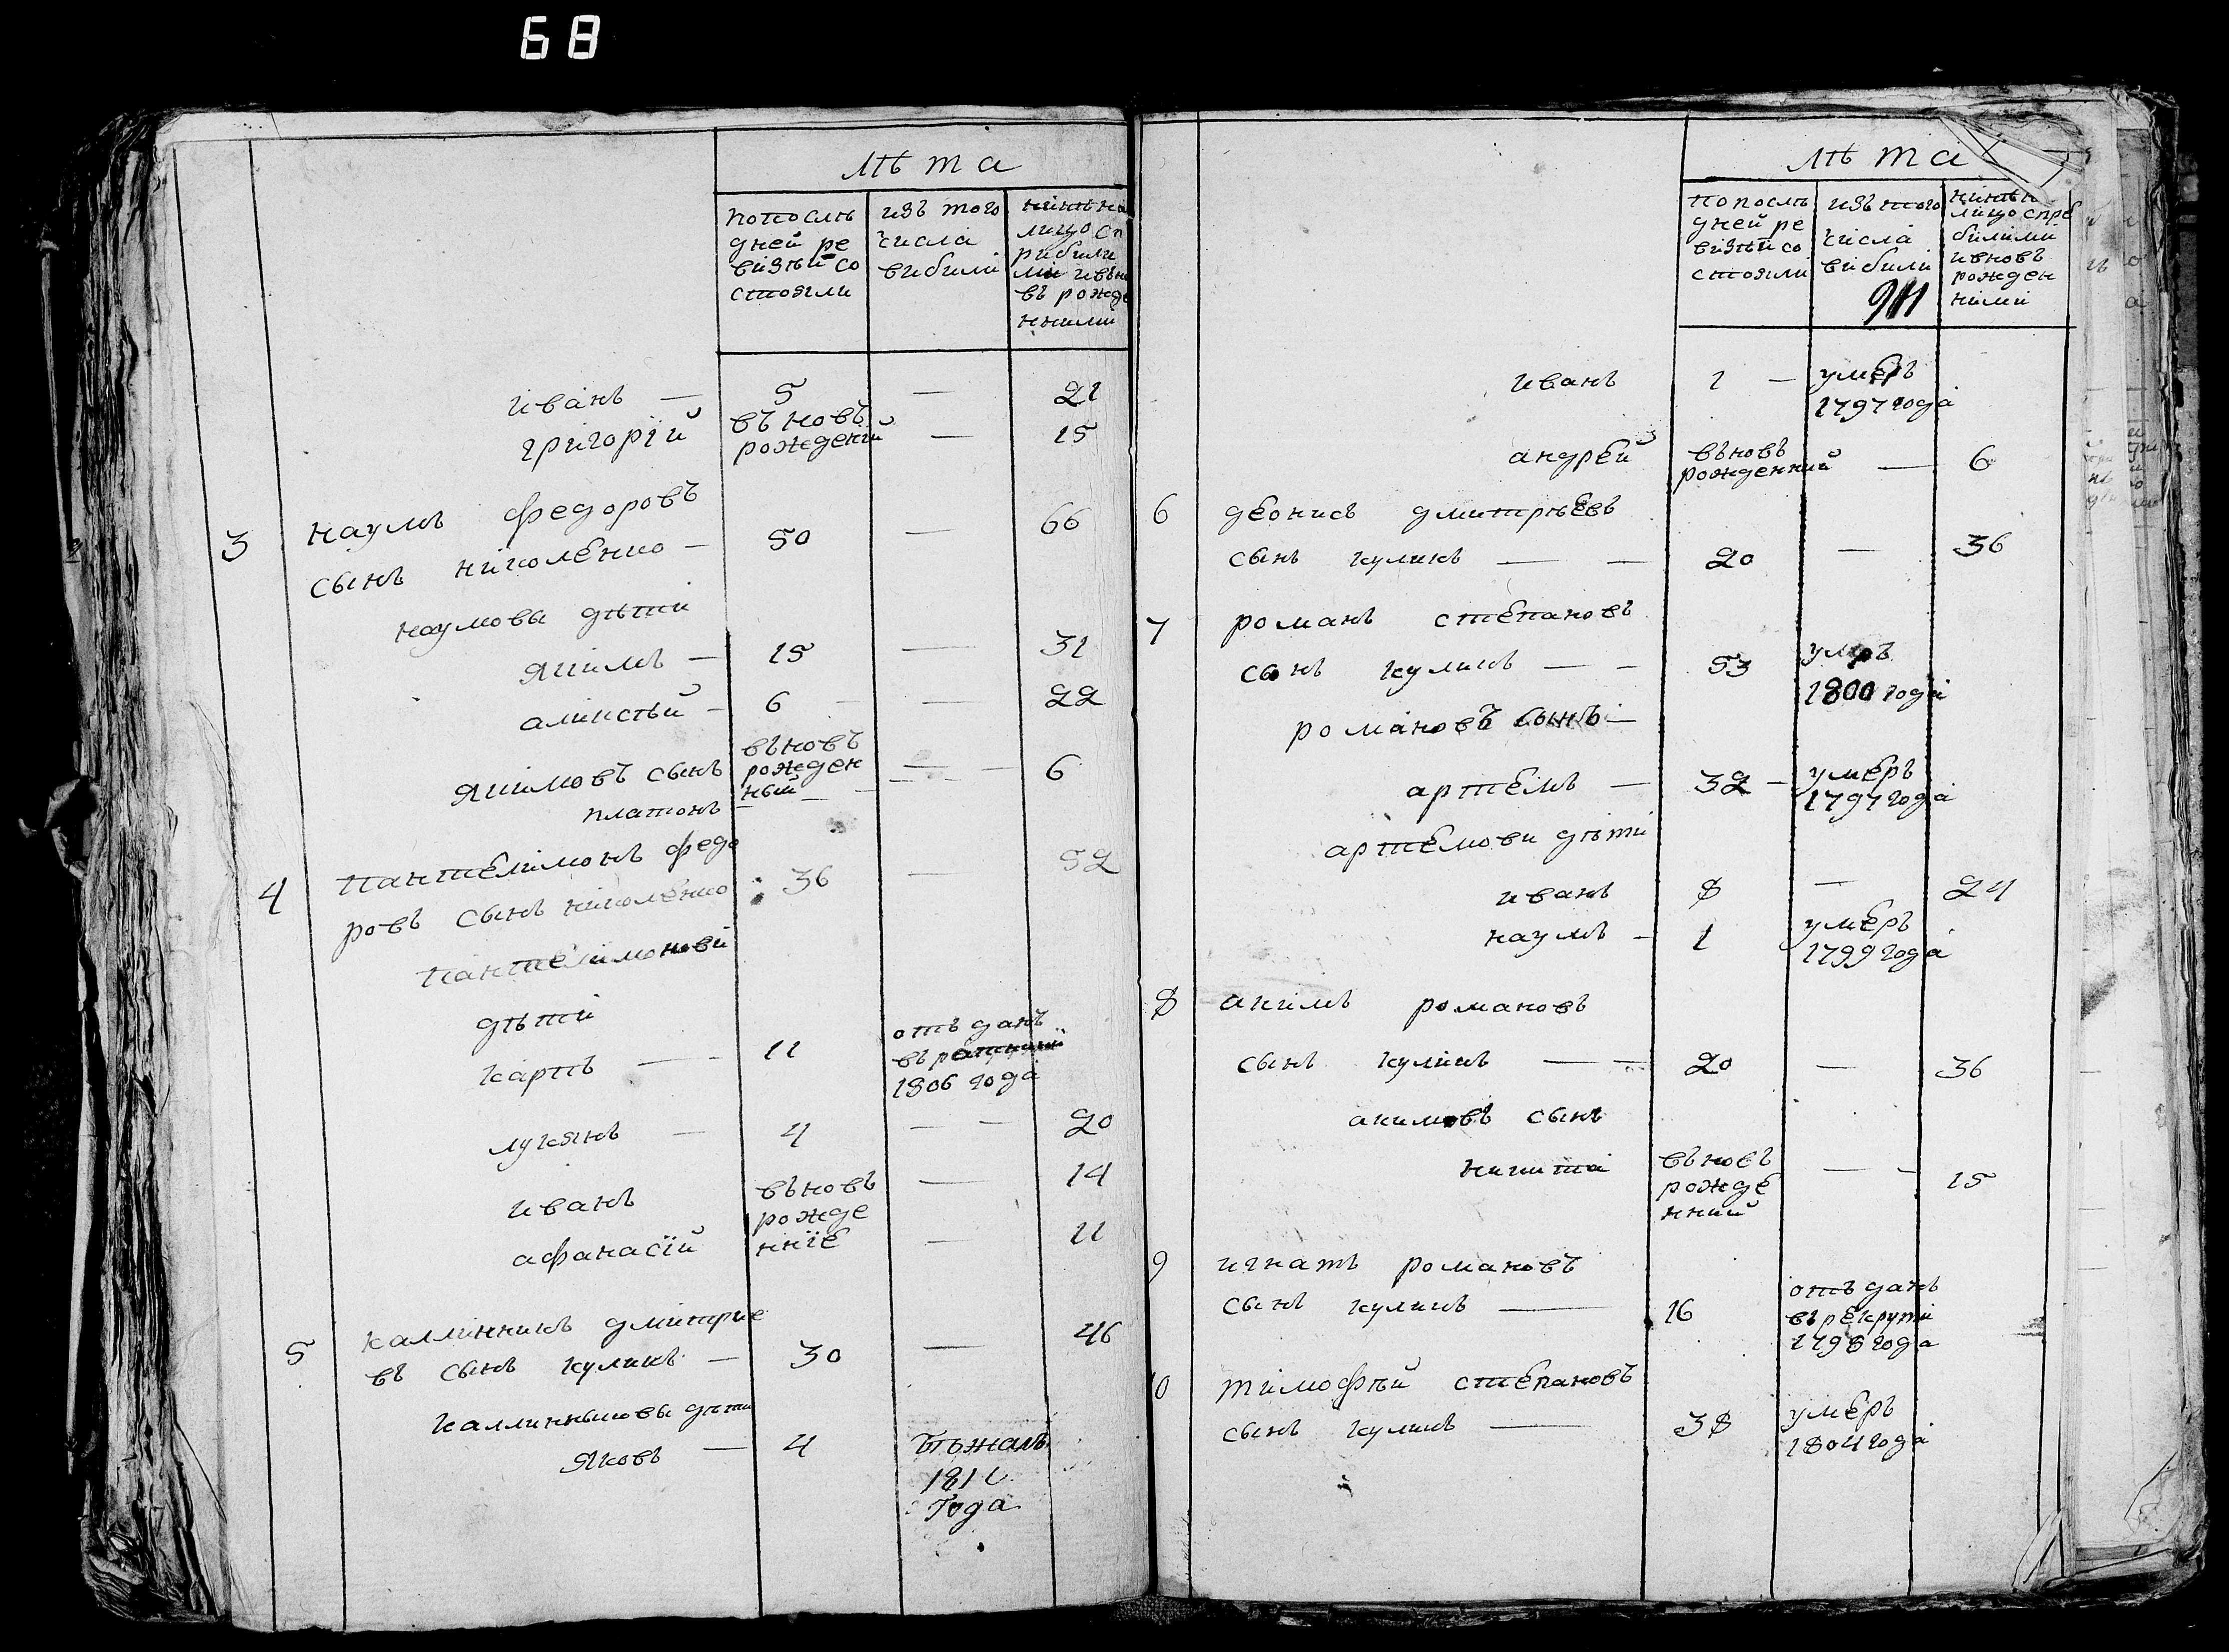 68
лѣта
попослѣ
дней ре
визіи со
стояли
изъ того
числа
вибили
нинѣ на
лицо сп
рибили
ми ивьно
въ рожде
нними
иванъ — 5 — 21
григорій въновъ рожденій — 15
3 наумъ федоровъ
сынъ николенко — 50 — 66
наумовы дѣти
якимъ — 15 — 31
аликсѣй — 6 — 22
якимовъ сынъ въновъ рожден ный — 6
платонъ —
4 пантелимонъ федо
ровъ сынъ николенко 36 — 52
пантелимонови
дѣти
карпъ — 11 отъ данъ
1806 года
лукянъ — 4 — 20
иванъ въновъ — 14
рожде
афанасій нніе — 11
5 каллинникъ дмитрие
въ сынъ куликъ — 30 — 46
каллинниковы дѣти
яковъ — 4 бѣжалъ
1811
года
лѣта
попослѣ
дней ре
визіи со
стояли
изъ того
числа
вибили
нинѣ н
лицо спре
билими
ивновъ
рожден
ними
иванъ 1 — умеръ
1797 года
андрей въновъ
рожденний — 6
6 деонисъ дмитріевъ
сынъ куликъ — — 20 — 36
7 романъ степановъ
сынъ куликъ — — 53 умръ
1800 года
романовъ сынъ —
артемъ — 32 — умеръ
1797 года
артемови дѣти
иванъ 8 — 24
наумъ — 1 умеръ
1799 года
8 акимъ романовъ
сынъ куликъ — — 20 — 36
акимовъ сынъ
никита въновъ — 15
рожде
нний
9 игнатъ романовъ
сынъ куликъ — 16 отъ данъ
въ рекрути
1798 года
10 тимофѣй степановъ
сынъ куликъ — 38 умеръ
1804 года